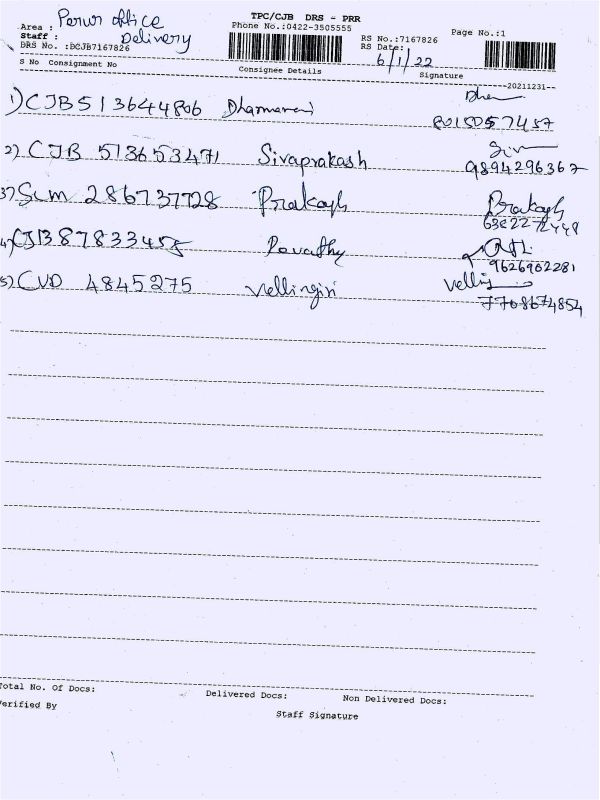 TPC/CJB DRS - PRR
Area : Perur office
Phone No.:0422-3505555
Page No.:1
Staff : Delivery
RS No.:7167826
DRS No. :DCJB7167826
RS Date: 6/1/22
S No Consignment No Consignee Details Signature
20211231
1) CJB513644806 Dharmarani
8015057457
2) CJB 513653471 Sivaprakash
9894296367
3) SLM 286737728 Prakash Prakash
6382272448
4) CJB387833455 Revathy
9626902281
5) CVD 4845275 Vellingiri Velling
7708674854
Total No. Of Docs: Delivered Docs: Non Delivered Docs:
Verified By Staff Signature